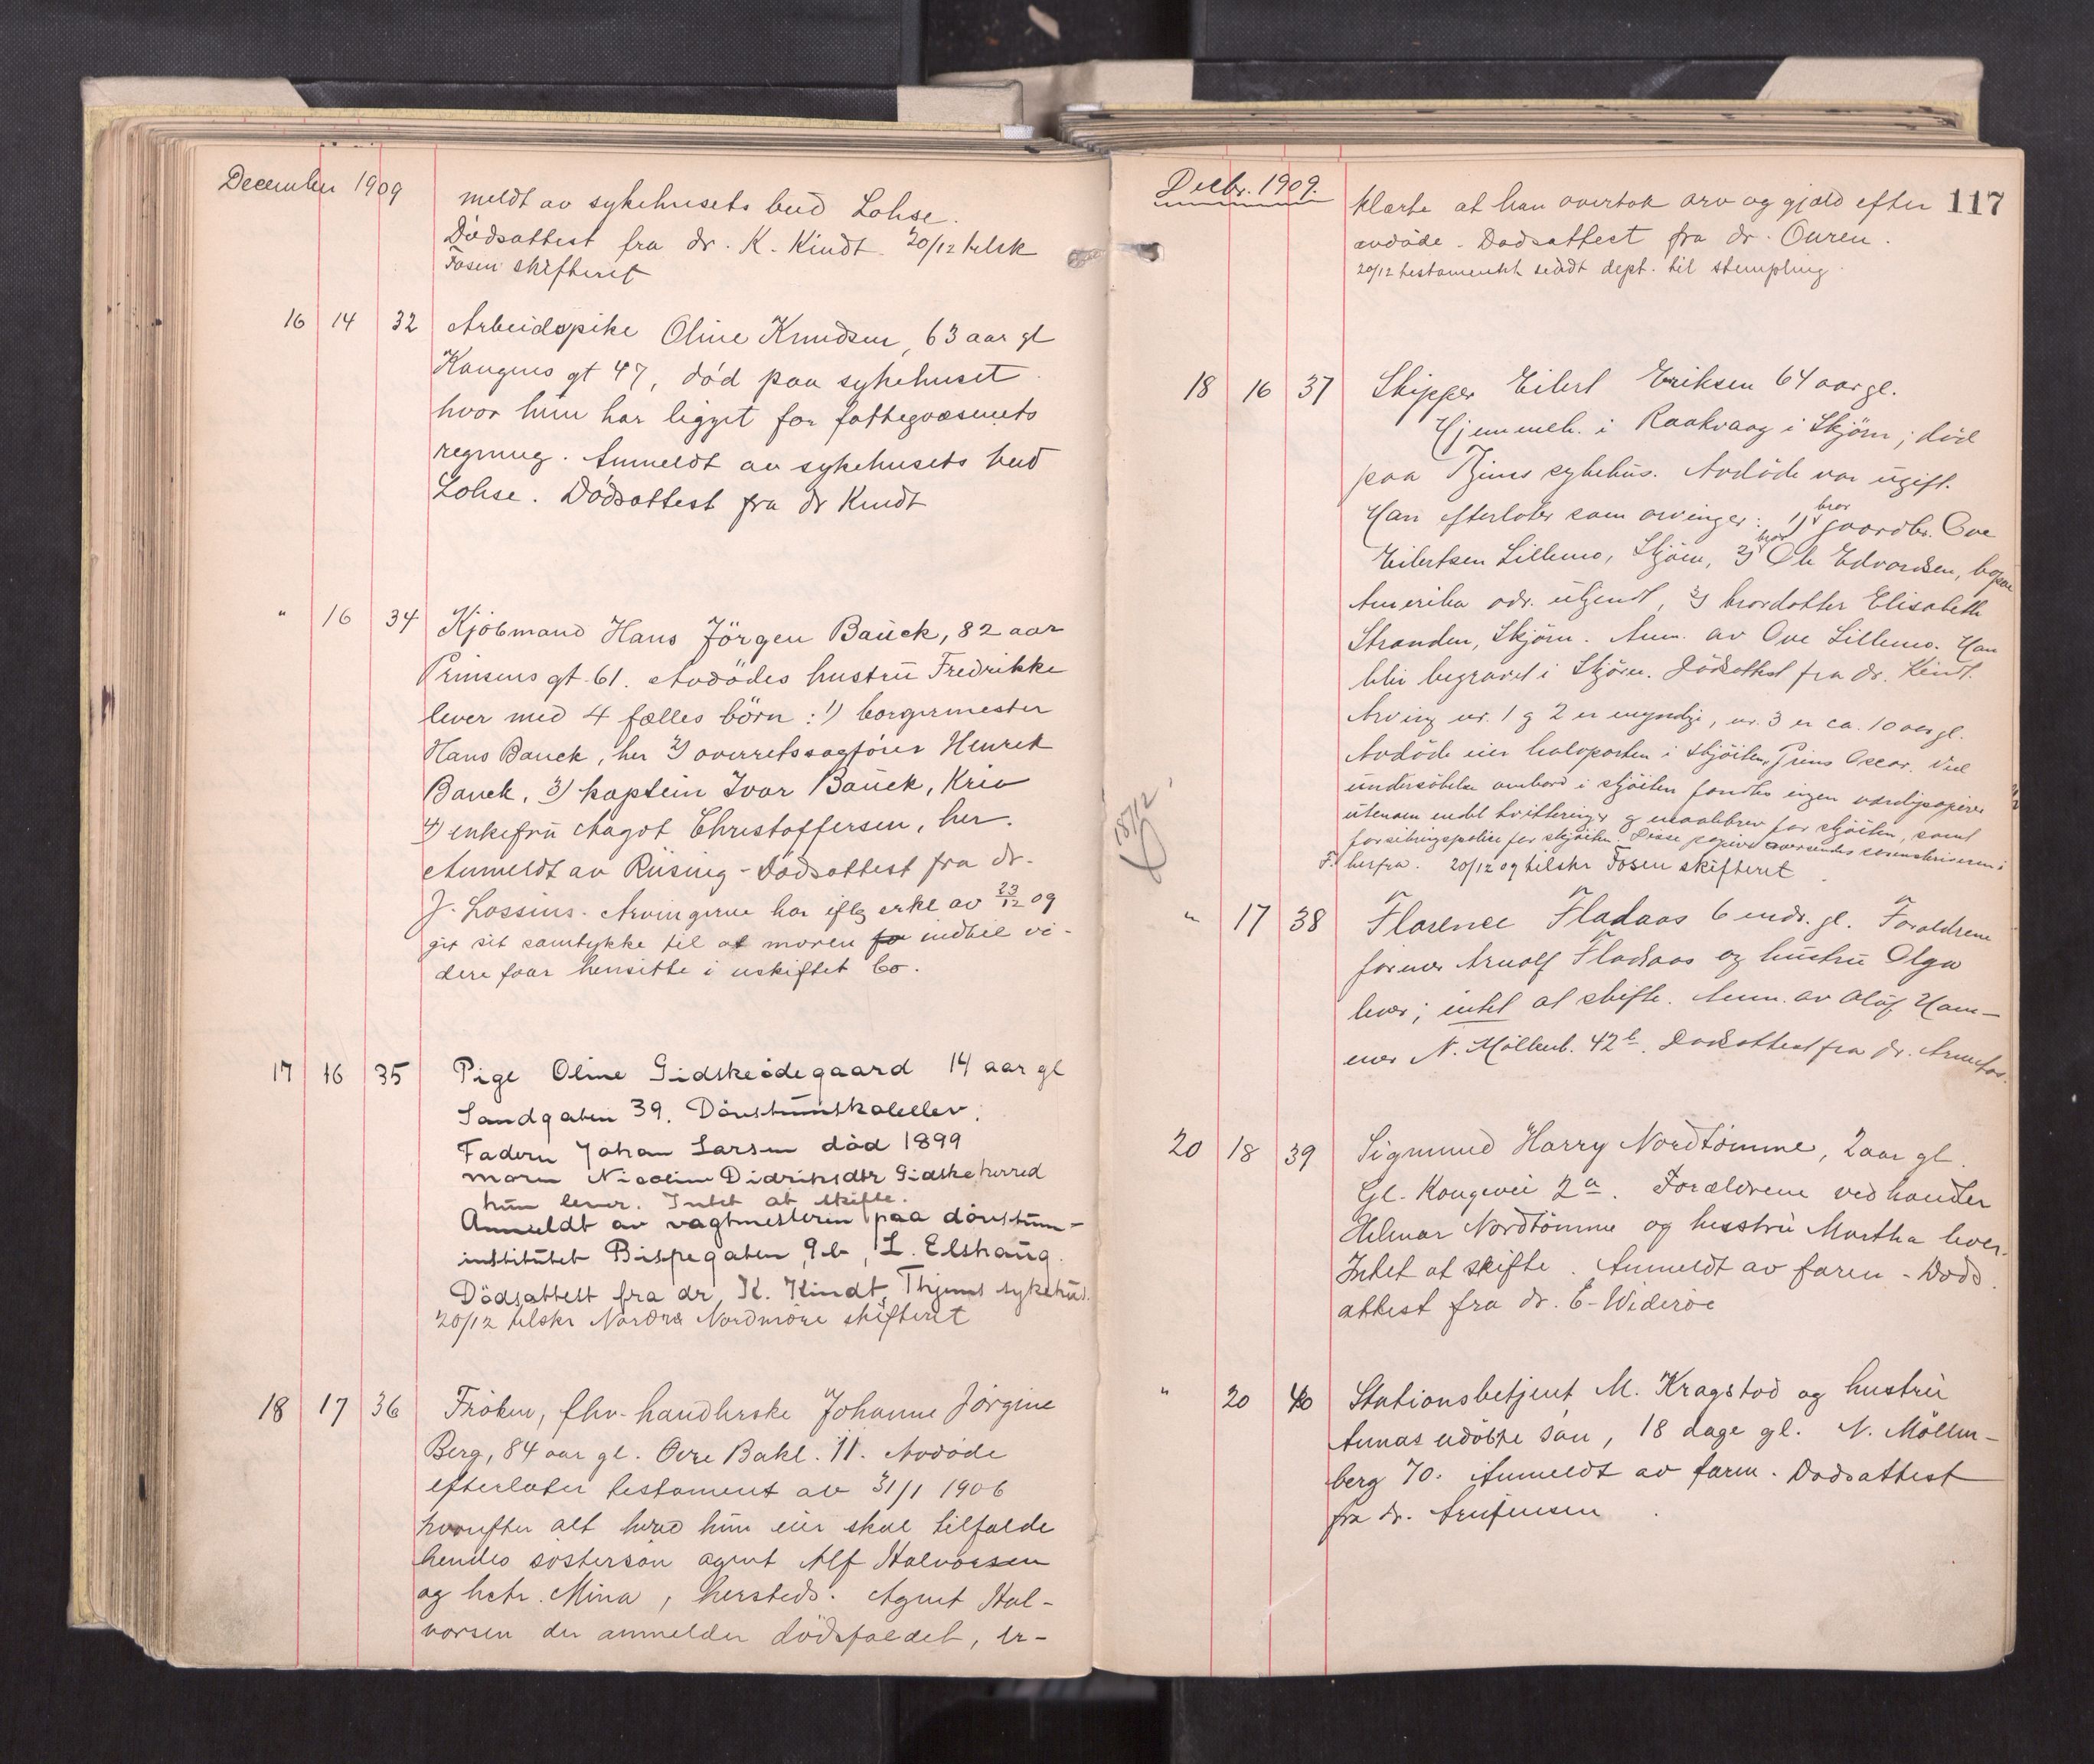 December 1909
meldt av sykehusets bud Lohse.
Dødsattest fra dr. K. Kindt. 20/12 telsk
Fosen skifteret
16 14 32 Arbeidspike Oline Knudsen, 63 aar gl
Kongens gt 47, död paa sykehuset
hvor hun har ligget for fattegvæsenets
regning. Anmeldt av sykehusets bud
Lohse. Dödsattest fra dr Kindt
" 16 34 Kjöbmand Hans Jörgen Bauck, 82 aar
Prinsens gt. 61. Avdödes hustru Fredrikke
lever med 4 fælles börn: 1) borgermester
Hans Bauck, her 2) overretssagfører Henrik
Bauck, 3) kaptein Ivar Bauck, Kria
4) enkefru Aagot Christoffersen, her.
Anmeldt av Rüsing - Dødsattest fra dr.
J. Lossius. Arvingerne har iflg erkl av 23/12 09
git sit samtykke til at moren fo indtil vi-
dere faar hensitte i uskiftet bo.
17 16 35 Pige Oline Gidskeödegaard 14 aar gl
Sandgaten 39. Dövstumskoleelev.
Faderen Johan Larsen död 1899
moren Nicoline Didriksdtr Gidske herred
hun lever. Intet at skifte.
Anmeldt av vagtmesteren paa dövstum-
institutet Bispegaten 9b, L. Elshaug.
Dödsattest fra dr. K. Kindt, Thjems sykehus.
20/12 telskr Nordre Nordmöre skifteret
18 17 36 Fröken, fhv. handlerske Johanne Jörgine
Berg, 84 aar gl. Övre Bakl. 11. Avdöde
efterlater testament av 31/1 1906
hvorefter alt hvad hun eier skal tilfalde
hendes søstersøn agent Alf Halvorsen
og hstr. Mina, hersteds. Agent Hal-
vorsen der anmelder dödsfaldet, er-
18/12
Decbr. 1909.
117
klærte at han overtok arv og gjæld efter
avdøde. Dødsattest fra dr. Ouren.
20/12 testamentet sendt dept. til stempling.
18 16 37 Skipper Eilert Eriksen 64 aar gl.
Hjemmeh. i Raakvaag i Skjörn; död
paa Tjems sykehus. Avdöde var ugift.
Han efterlater som arvinger: 1) bror gaardbr. Ove
Eilertsen Lillemo, Skjörn, 2) bror Ole Edvardsen, bopæl
Amerika adr. ukjendt, 3) brordatter Elisabeth
Stranden, Skjörn. Anm. av Ove Lillemo. Han
blir begravet i Skjörn. Dödsattest fra dr. Kindt.
Arving nr. 1 g 2 er myndige, nr. 3 er ca. 10 aar gl.
Avdöde eier halvparten i skjöiten Prins Oscar. Ved
undersökelse ombord i skjöiten fandtes ingen værdipapirer
utenom endel kvitteringer g maalebrev for skjöiten, samt
forsikringspolice for skjöiten. Disse papirer oversendes sorenskriveren i
F. herfra. 20/12 09 tilskr Fosen skifteret
" 17 38 Florence Fladaas 6 mdr. gl. Forældrene
former Arnolf Fladaas og hustru Olga
lever; intet at skifte. Anm. av Oluf Ham-
mer N. Möllenb. 42b. Dødsattest fra dr.
20 18 39 Sigmund Harry Nordtömme, 2 aar gl.
Gl. Kongevei 2a. Forældrene vedhandler
Helmar Nordtömme og hustru Martha lever.
Intet at skifte. Anmeldt av faren - Døds
attest fra dr. E. Wideröe
" 20 40 Stationsbetjent M. Kragstad og hustru
Annas udöbte sön, 18 dage gl. N. Möllen-
berg 70. Anmeldt av faren. Dødsattest
fra dr.